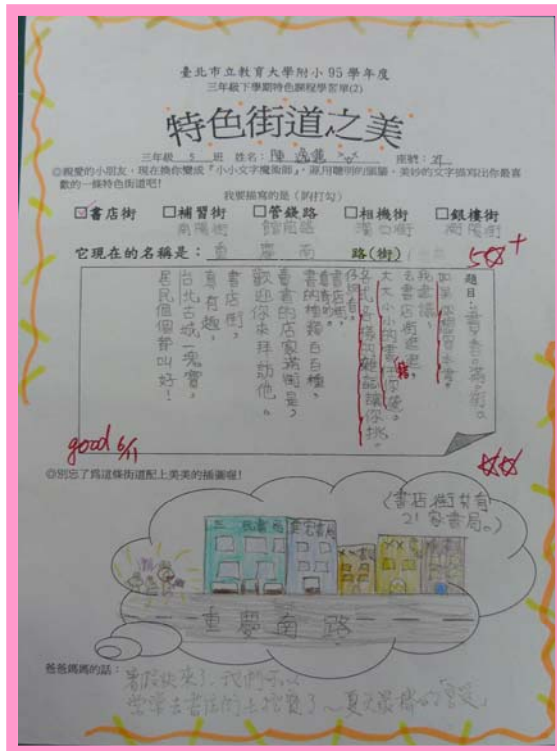 臺北市立教育大學附小95學年度
三年級下學期特色課程學習單(2)
特色街道之美
三年級 5 班 姓名：陳 座號：
◎親愛的小朋友，現在換你變成『小小文字魔術師』，運用聰明的頭腦，美妙的文字描寫出你最喜
歡的一條特色街道吧!
我要描寫的是 (請打勾)
☑書店街 □補習街 □管錢路 □相機街 □銀樓街
南陽街 館前路 漢口街 衡陽街
它現在的名稱是： 重慶南 路(街)
題目：書香滿街
如果你想買本書，
我建議，
去書店街逛逛，
大大小小的書
各式各樣的雜誌讓你挑。
仔細看，
書店街，
書的種類百百種，
賣書的店家滿街是，
歡迎你來拜訪他。
書店街，
真有趣，
台北古城一塊寶，
居民個個都叫好！
good 6/11
◎別忘了為這條街道配上美美的插圖喔!
(書店街共有
21家書局。)
三民書局
重慶南路
爸爸媽媽的話：
暑假快來了，我們可以
常常去書店街